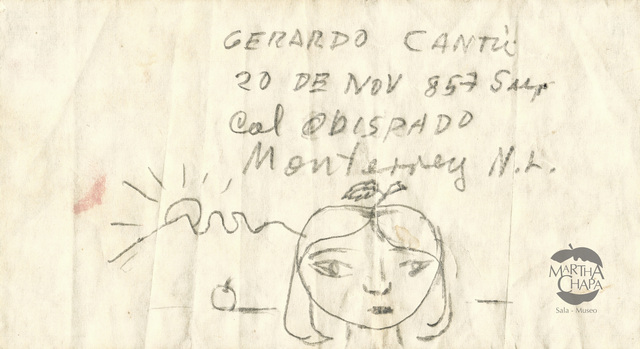 GERARDO CANTÚ
20 DE NOV 857 Sur
Col OBISPADO
Monterrey N.L.
MARTHA
CHAPA
Sala - Museo